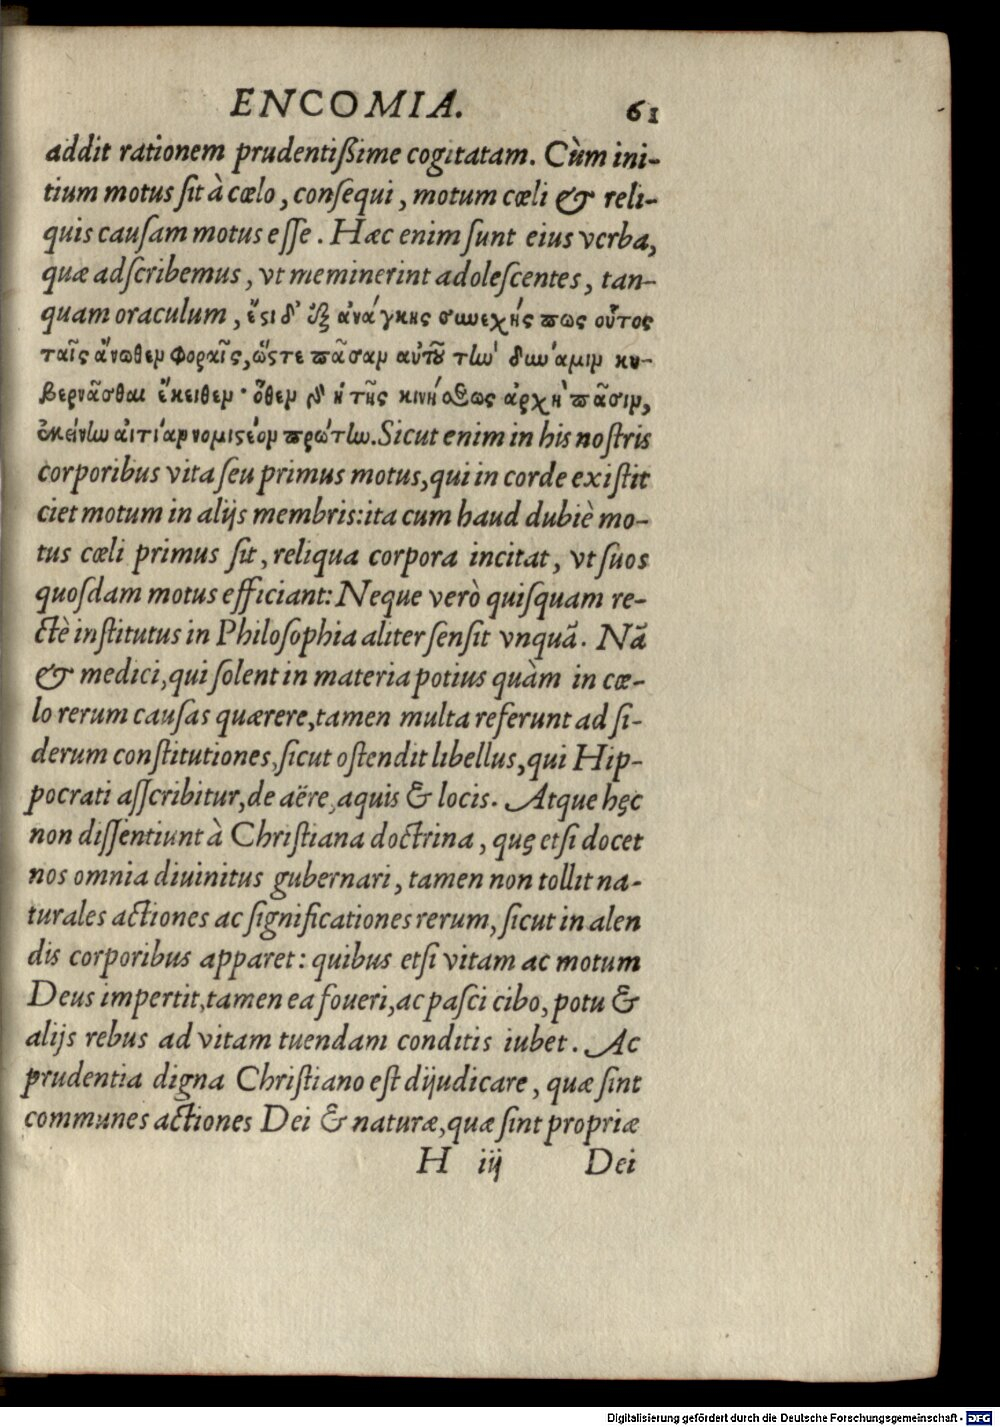 ENCOMIA. 61
addit rationem prudentißime cogitatam. Cùm ini-
tium motus ſit à cœlo, conſequi, motum cœli & reli-
quis cauſam motus eſſe. Hæc enim ſunt eius verba,
quæ adſcribemus, vt meminerint adoleſcentes, tan-
quam oraculum, ἔϛι δ' ἐξ ἀνάγκης συνεχής πως οὗτος
ταῖς ἄνωθεν φοραῖς, ὥϛτε πᾶσαν αὐτοῦ τὴν δύναμιν κυ-
βερνᾶσθαι ἐκειθεν· ὅθεν δὲ ἡ τῆς κινήσεως ἀρχὴ πᾶσιν,
ἐκείνην αἰτίαν νομιϛέον πρώτην. Sicut enim in his noſtris
corporibus vita ſeu primus motus, qui in corde exiſtit
ciet motum in alijs membris: ita cum haud dubiè mo-
tus cœli primus ſit, reliqua corpora incitat, vt ſuos
quoſdam motus efficiant: Neque verò quiſquam re-
ctè inſtitutus in Philoſophia aliter ſenſit vnquã. Nã
& medici, qui ſolent in materia potius quàm in cœ-
lo rerum cauſas quærere, tamen multa referunt ad ſi-
derum conſtitutiones, ſicut oſtendit libellus, qui Hip-
pocrati aſſcribitur, de aëre, aquis & locis. Atque hęc
non diſſentiunt à Chriſtiana doctrina, quę etſi docet
nos omnia diuinitus gubernari, tamen non tollit na-
turales actiones ac ſignificationes rerum, ſicut in alen
dis corporibus apparet: quibus etſi vitam ac motum
Deus impertit, tamen ea foueri, ac paſci cibo, potu &
alijs rebus ad vitam tuendam conditis iubet. Ac
prudentia digna Chriſtiano eſt dijudicare, quæ ſint
communes actiones Dei & naturæ, quæ ſint propriæ
H iij Dei
Digitalisierung gefördert durch die Deutsche Forschungsgemeinschaft - DFG